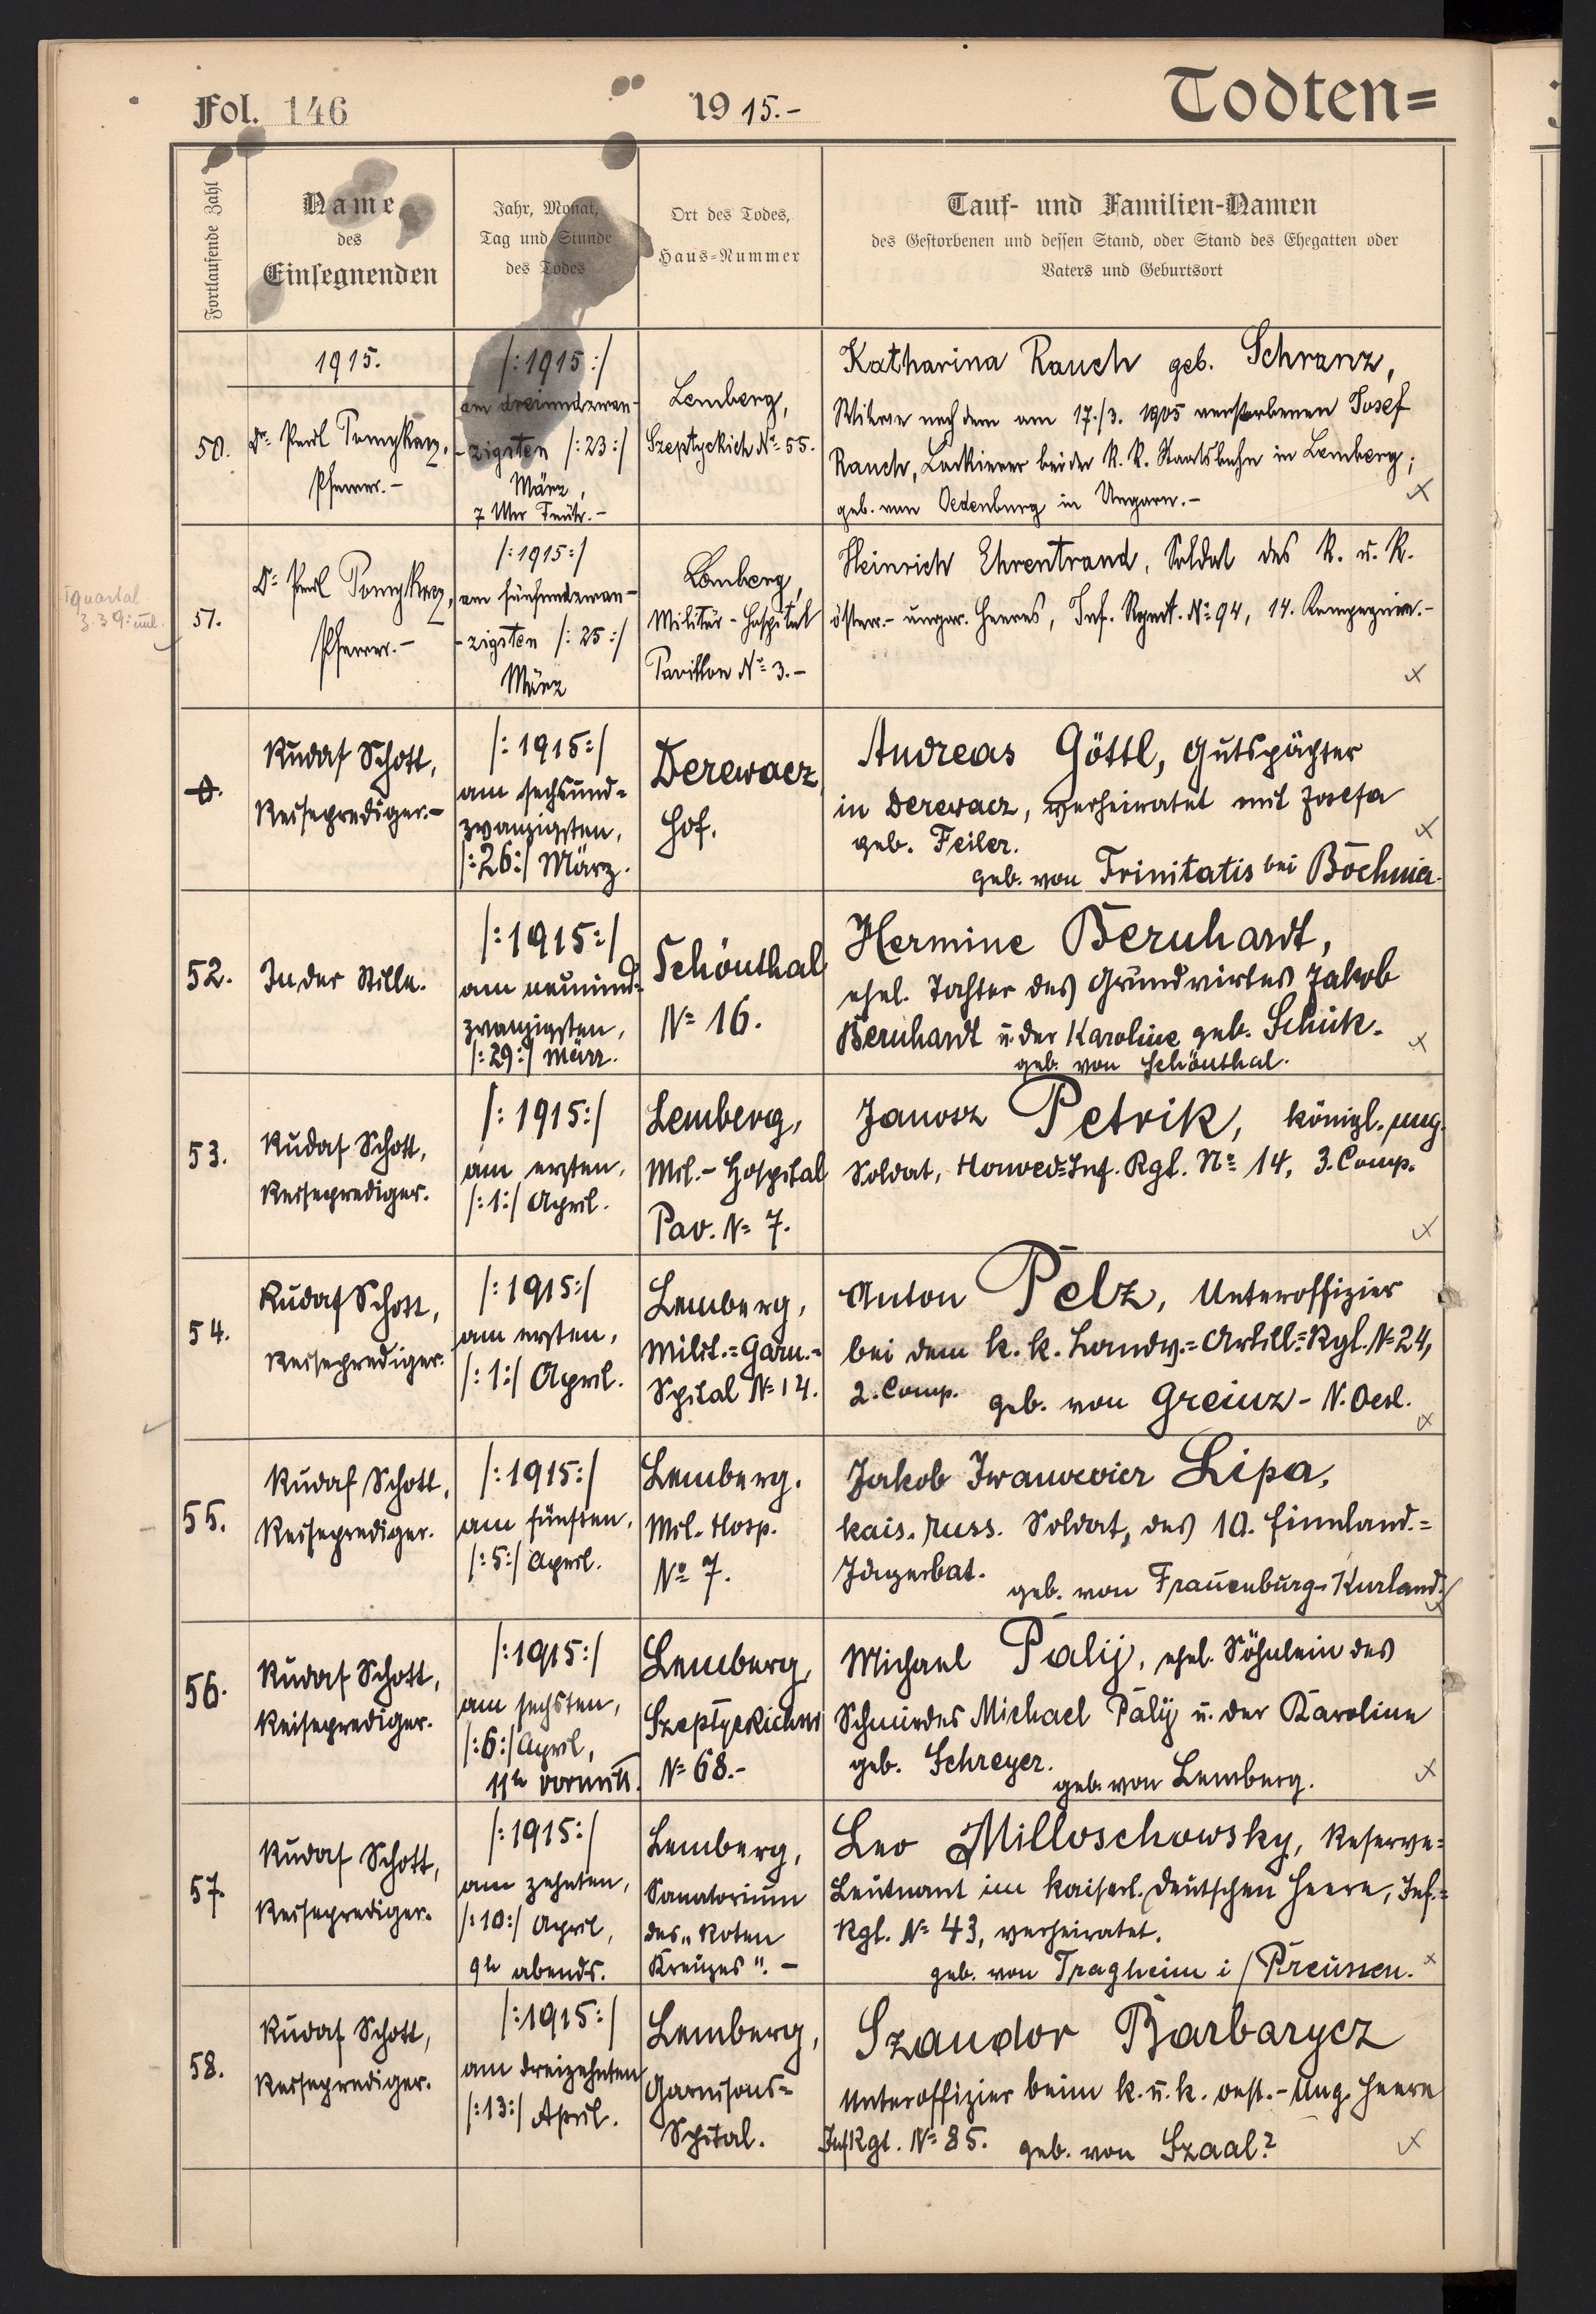 Fol. 146
19 15.-
Todten=
Fortlaufende Zahl
Name
des
Einsegnenden
Jahr, Monat,
Tag und Stunde
des Todes
Ort des Todes,
Haus-Nummer
Tauf- und Familien-Namen
des Gestorbenen und dessen Stand, oder Stand des Ehegatten oder
Vaters und Geburtsort
1915.
50.
Dr. Paul
Pfarrer.-
/:1915:/
am dreiundzwan-
-zigsten /:23:/
März,
7 Uhr Früh.-
Lemberg,
Szeptyckich No 55.
Katharina Rauch geb. Schranz,
Witwe nach dem am 17./3. 1905 verstorbenen Josef
Rauch, Lackierer bei der K. K. Staatsbahn in Lemberg;
geb. von Oedenburg in Ungarn.-
I Quartal
51.
Dr. Paul
Pfarrer.-
/:1915:/
am fünfundzwan-
-zigsten /:25:/
März
Lemberg,
Militär-Hospital
Pavillon No 3.-
Heinrich Ehrentraud, Soldat des K. u. K.
österr.-ungar. Heeres, Inf. Rgmt. No 94, 14. Kompagnie.-
0.
Rudolf Schott,
Reiseprediger.-
/:1915:/
am sechsund=
zwanzigsten,
/:26:/ März.
Derewacz,
Hof.
Andreas Göttl, Gutspächter
in Derewacz, verheiratet mit Josefa
geb. Feiler.
geb. von Trinitatis bei Bochnia.
52.
In der Stille.
/:1915:/
am neunund=
zwanzigsten,
/:29:/ März.
Schönthal,
No 16.
Hermine Bernhardt,
ehel. Tochter des Grundwirtes Jakob
Bernhardt u. der Karoline geb. Schick.
geb. von Schönthal.
53.
Rudolf Schott,
Reiseprediger.
/:1915:/
am ersten,
/:1:/ April.
Lemberg,
Mil.-Hospital
Pav. No 7.
Janosz Petrik, königl. ung.
Soldat, Honved=Inf. Rgt. No 14, 3. Comp.
54.
Rudolf Schott,
Reiseprediger.
/:1915:/
am ersten,
/:1:/ April.
Lemberg,
Milit.=Garn.=
Spital No 14.
Anton Pelz, Unteroffizier
bei dem k. k. Landw.=Artill.=Rgt. No 24,
2. Comp. geb. von Greinz - N. Oest.
55.
Rudolf Schott,
Reiseprediger.
/:1915:/
am fünften,
/:5:/ April.
Lemberg.
Mil. Hosp.
No 7.
Jakob Iwanowicz Lipa,
kais. russ. Soldat, des 10. finnland.=
Jägerbat. geb. von Frauenburg-Kurland.
56.
Rudolf Schott,
Reiseprediger.
/:1915:/
am sechsten,
/:6:/ April,
11h vormitt.
Lemberg,
No 68.-
Michael Palij, ehel. Söhnlein des
Schmiedes Michael Palij u. der Karoline
geb. Schreyer. geb. von Lemberg.
57.
Rudolf Schott,
Reiseprediger.
/:1915:/
am zehnten,
/:10:/ April,
9h abends.
Lemberg,
Sanatorium
des „Roten
Kreuzes". -
Leo Milloschowsky, Reserve=
Leutnant im kaiserl. deutschen Heere, Inf.=
Rgt. No 43, verheiratet.
geb. von Tragheim i/Preussen.
58.
Rudolf Schott,
Reiseprediger.
/:1915:/
am dreizehnten
/:13:/ April.
Lemberg,
Garnisons=
Spital.
Szandor Barbarycz
Unteroffizier beim k. u. k. oest.-ung. Heere
Inf Rgt. No 85. geb. von Szaal?